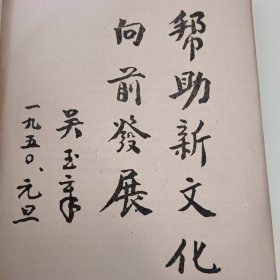 帮助新文化
向前發展
吴玉章
一九五〇、元旦